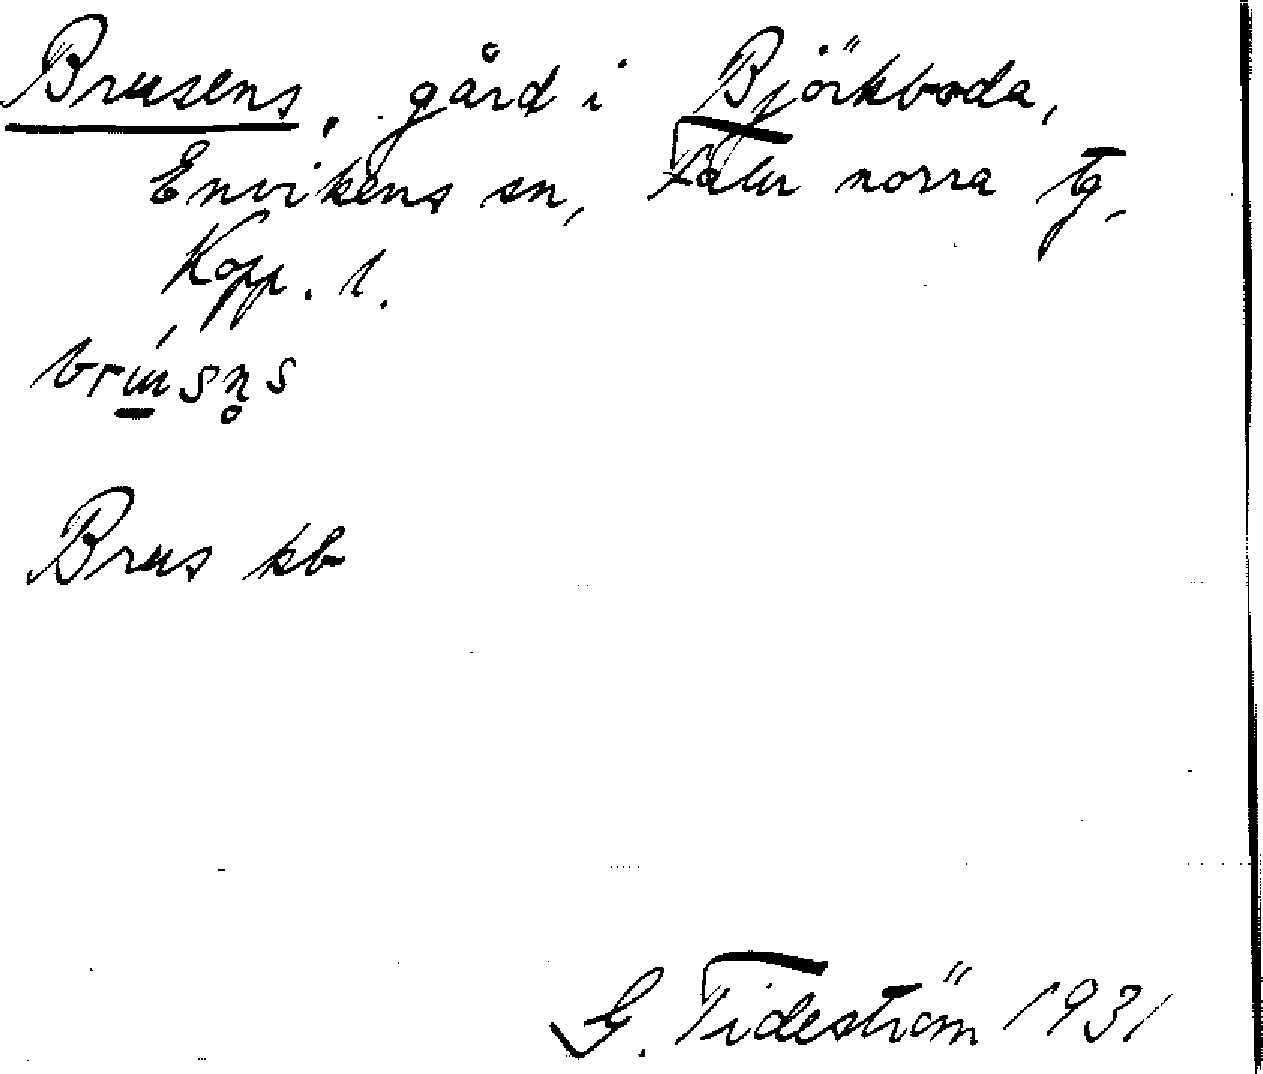 Brusens, gård i Björkboda,
Envikens sn, Falu norra tg,
Kopp. l.
brú̱sn̥s
Brus kb
G. Tideström 1931